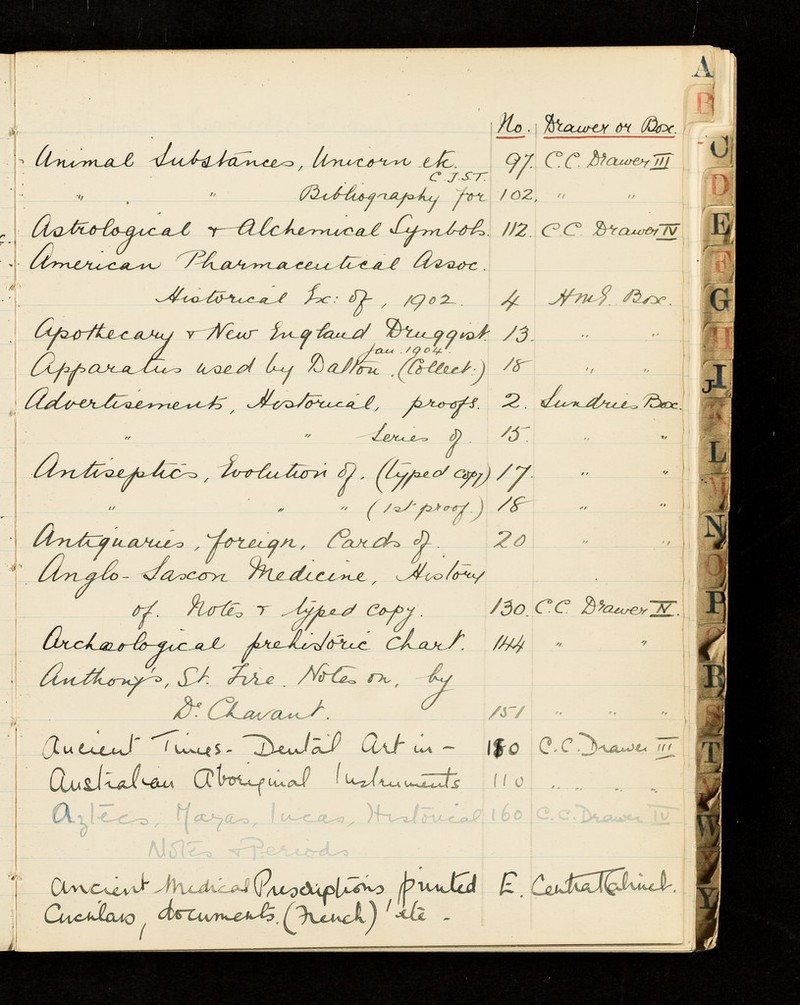 No. Drawer or Box.
Animal Substances, Unicorn etc. 97. C.C. Drawer III
C.J.S.T.
" " Bibliography for 102. " "
Astrological & Alchemical Symbols. 112. C.C. Drawer IV
American Pharmaceutical Assoc.
Historical Ex: of, 1902. 4 HME. Box.
Apothecary & New England Druggist. 13. " "
Jan. 1904.
Apparatus used by Dalton. (Collect:) 18 " "
Advertisements, Historical, proofs. 2. Sundries Box.
" " Series of. 15. " "
Antiseptics, Evolution of. (typed copy) 17. " "
" " " (1st proof.) 18 " "
Antiquaries, foreign, Cards of. 20 " "
Anglo-Saxon Medicine, History
of. Notes & typed copy. 130. C.C. Drawer IV.
Archæological prehistoric Chart. 144 " "
Anthony's, St. Fire. Notes on, by
Dr. Chavant. 151 " " "
Ancient Times - Dental Art in - 180 C.C. Drawer III
Australian Aboriginal Instruments 110 " " " "
Aztecs, Mayas, Incas, Historical 160 C.C. Drawer IV
Notes & Periods
Ancient Medical Prescriptions printed E. Central Cabinet.
Circulars, documents. (French) etc -
A
B
C
D
E
F
G
H
I J
K
L
M
N
O
P
R
S
T
V
W
Y